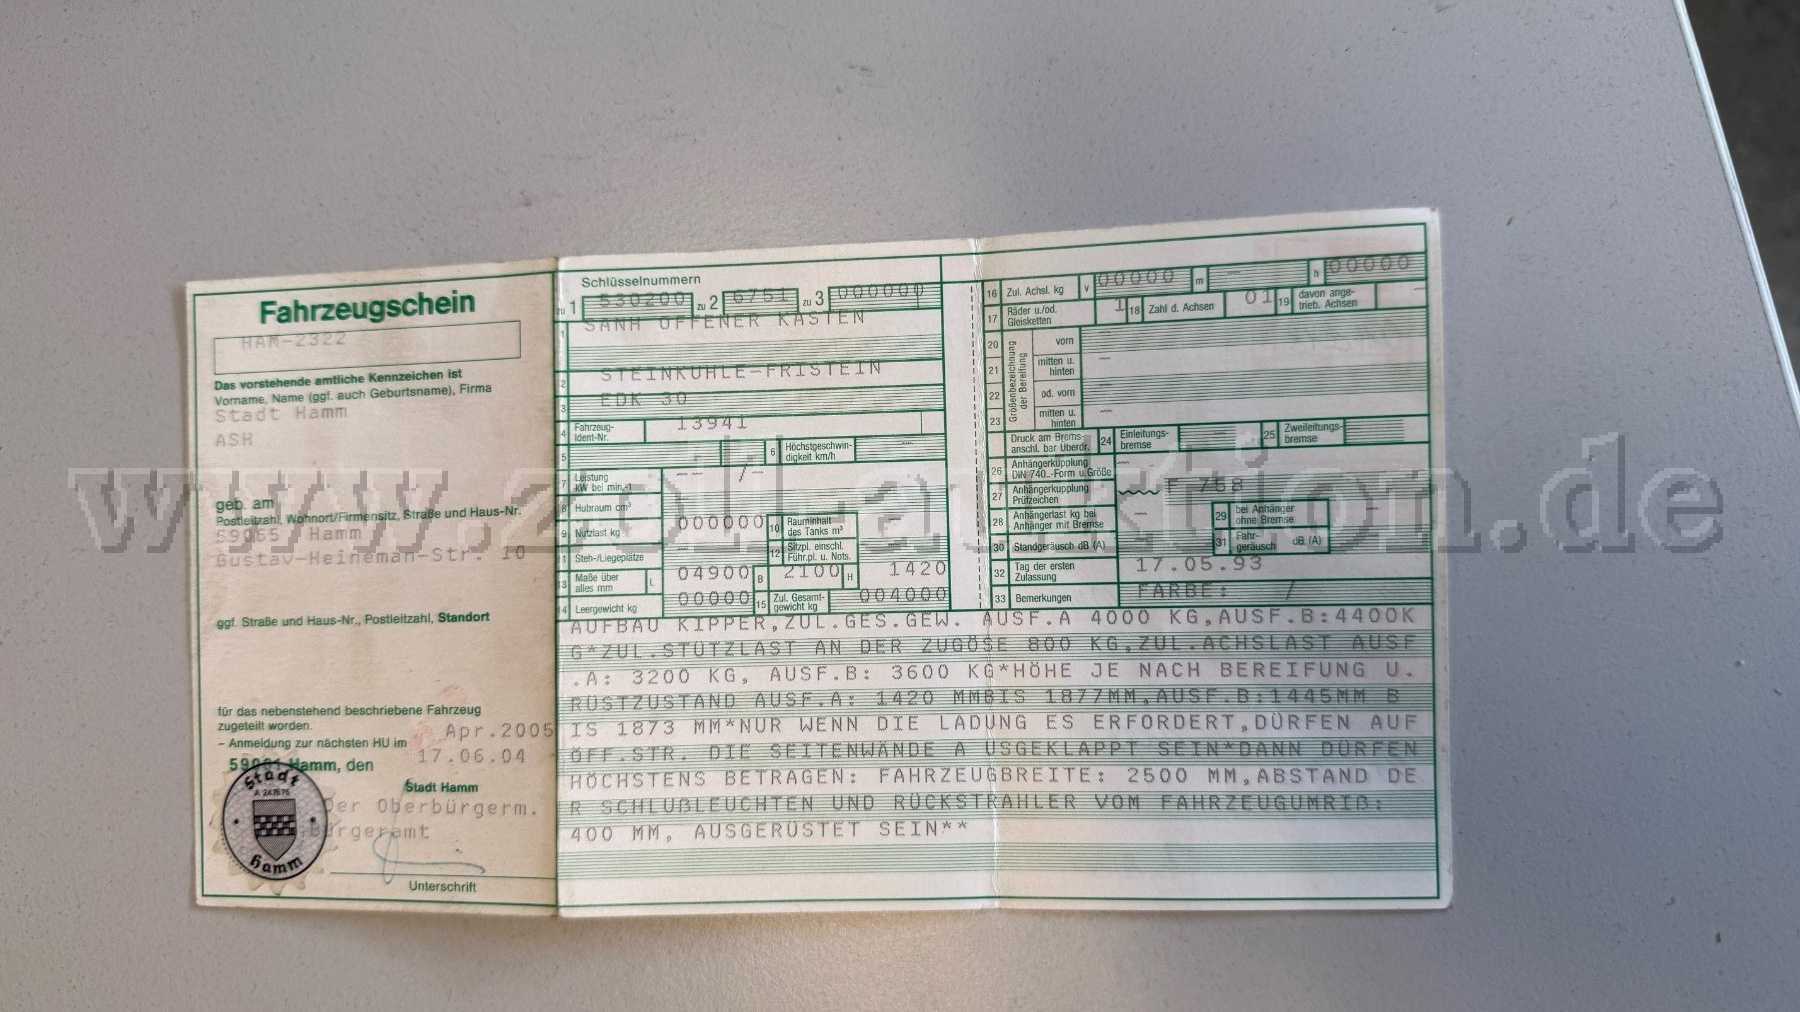 Fahrzeugschein
HAM-2322
Das vorstehende amtliche Kennzeichen ist
Vorname, Name (ggf. auch Geburtsname), Firma
Stadt Hamm
ASH
geb. am
Postleitzahl, Wohnort/Firmensitz, Straße und Haus-Nr.
59065 Hamm
Gustav-Heineman-Str. 10
ggf. Straße und Haus-Nr., Postleitzahl, Standort
für das nebenstehend beschriebene Fahrzeug
zugeteilt worden.
– Anmeldung zur nächsten HU im Apr.2005
59061 Hamm, den 17.06.04
Stadt Hamm
Der Oberbürgerm.
Bürgeramt
Unterschrift
Stadt
Hamm
Schlüsselnummern
zu 1 530200 zu 2 6751 zu 3 000000
1 SANH OFFENER KASTEN
2 STEINKUHLE-FRISTEIN
3 EDK 30
4 Fahrzeug-Ident-Nr. 13941
5 6 Höchstgeschwindigkeit km/h --
7 Leistung kW bei min.-1 -- /-
8 Hubraum cm³
9 Nutzlast kg 000000 10 Rauminhalt des Tanks m³
Steh-/Liegeplätze -- 12 Sitzpl. einschl. Führ.pl. u. Nots. --
13 Maße über alles mm L 04900 B 2100 H 1420
14 Leergewicht kg 00000 15 Zul. Gesamtgewicht kg 004000
16 Zul. Achsl. kg v 00000 m - h 00000
17 Räder u./od. Gleisketten 1 18 Zahl d. Achsen 01 19 davon angetrieb. Achsen -
Größenbezeichnung der Bereifung
20 vorn -
21 mitten u. hinten -
22 od. vorn -
23 mitten u. hinten -
Druck am Bremsanschl. bar Überdr. 24 Einleitungsbremse 25 Zweileitungsbremse
26 Anhängerkupplung DIN 740..-Form u.Größe -
27 Anhängerkupplung Prüfzeichen F 758
28 Anhängerlast kg bei Anhänger mit Bremse - 29 bei Anhänger ohne Bremse -
30 Standgeräusch dB (A) 31 Fahrgeräusch dB (A)
32 Tag der ersten Zulassung 17.05.93
33 Bemerkungen FARBE: /
AUFBAU KIPPER,ZUL.GES.GEW. AUSF.A 4000 KG,AUSF.B:4400K
G*ZUL.STÜTZLAST AN DER ZUGÖSE 800 KG,ZUL.ACHSLAST AUSF
.A: 3200 KG, AUSF.B: 3600 KG*HÖHE JE NACH BEREIFUNG U.
RÜSTZUSTAND AUSF.A: 1420 MMBIS 1877MM,AUSF.B:1445MM B
IS 1873 MM*NUR WENN DIE LADUNG ES ERFORDERT,DÜRFEN AUF
ÖFF.STR. DIE SEITENWÄNDE A USGEKLAPPT SEIN*DANN DÜRFEN
HÖCHSTENS BETRAGEN: FAHRZEUGBREITE: 2500 MM,ABSTAND DE
R SCHLUßLEUCHTEN UND RÜCKSTRAHLER VOM FAHRZEUGUMRIß:
400 MM, AUSGERÜSTET SEIN**
www.zoll-auktion.de